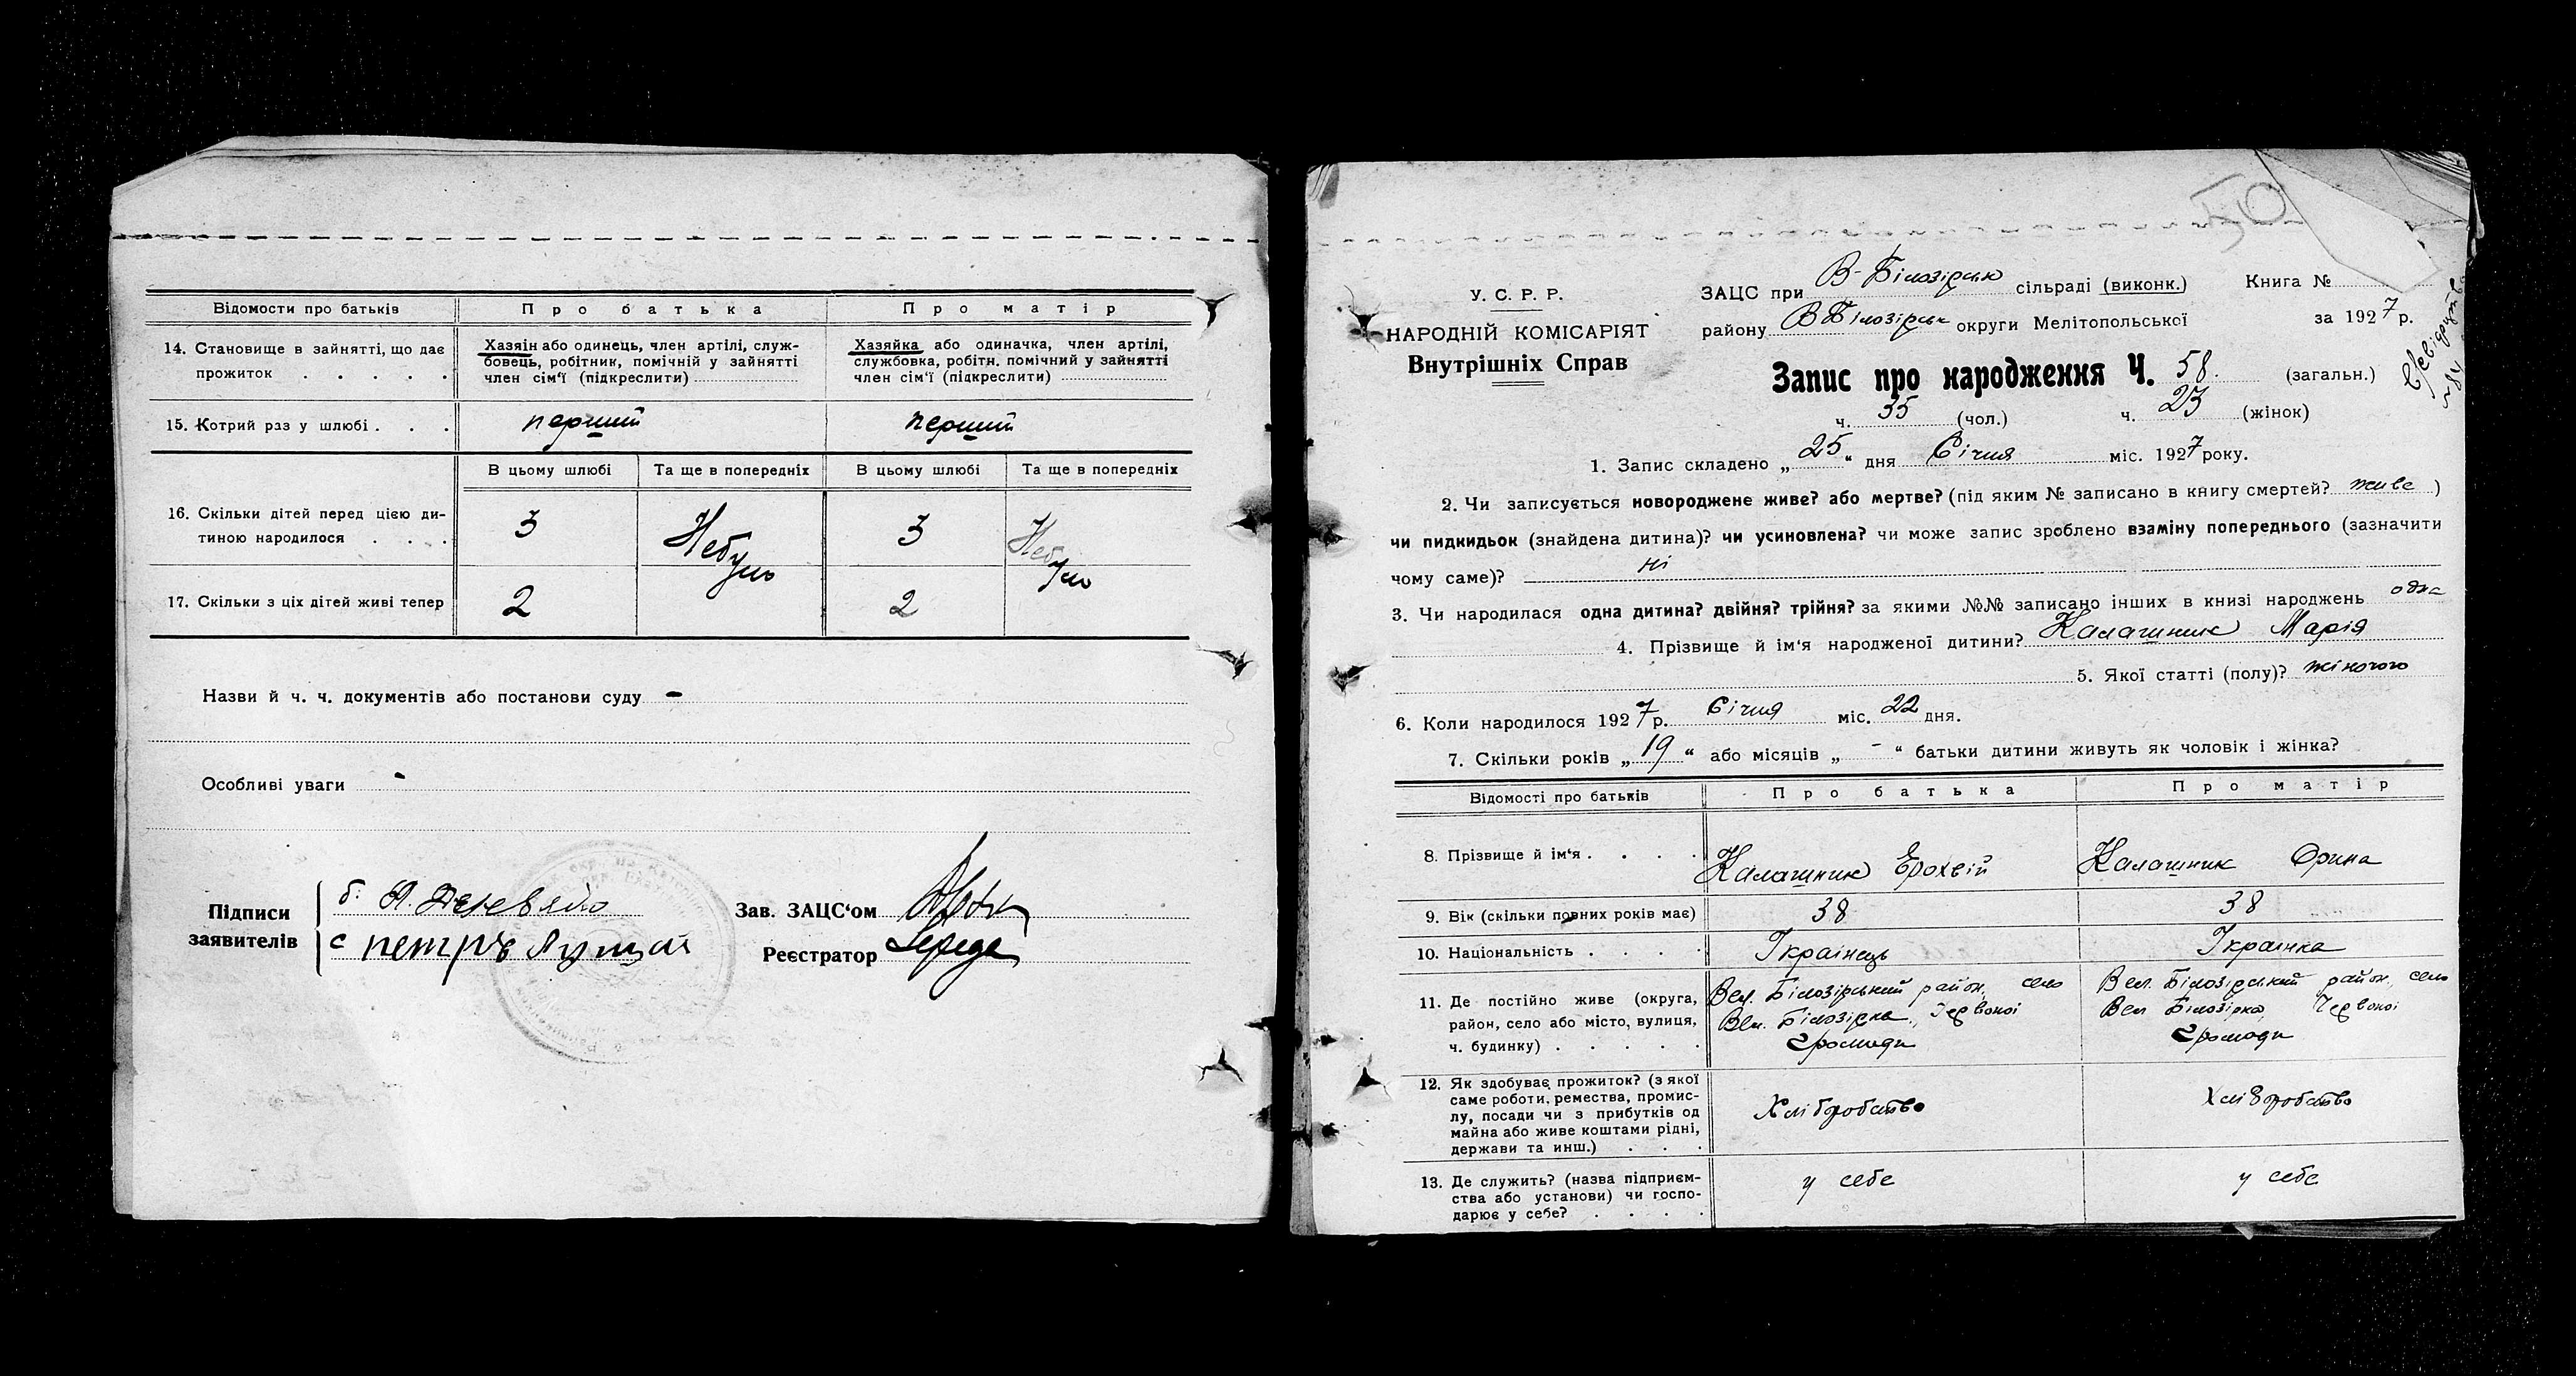 Відомости про батьків
Про батька
Про матір
14. Становище в зайнятті, що дає прожиток . . . . .
Хазяін або одинець, член артілі, служ-
бовець, робітник, помічній у зайнятті
член сім'ї (підкреслити)
Хазяйка або одиначка, член артілі,
службовка, робітн. помічний у зайнятті
член сім'ї (підкреслити)
15. Котрий раз у шлюбі . . .
перший
перший
В цьому шлюбі
Та ще в попередніх
В цьому шлюбі
Та ще в попередніх
16. Скільки дітей перед цією ди-
тиною народилося . . . .
3
Небуло
3
Небуло
17. Скільки з ціх дітей живі тепер
2
2
Назви й ч. ч. документів або постанови суду -
Особливі уваги -
Підписи
заявителів
б.
с петрів
Зав. ЗАЦС'ом
Реєстратор Середа
50
У. С. Р. Р.
НАРОДНІЙ КОМІСАРІЯТ
Внутрішніх Справ
ЗАЦС при В-Білозірськ сільраді (виконк.)
Книга №
району ВБілозірськ округи Мелітопольської
за 1927 р.
Запис про народження Ч. 58. (загальн.)
ч. 35 (чол.) ч. 23 (жінок)
1. Запис складено „25“ дня Січня міс. 1927 року.
2. Чи записується новороджене живе? або мертве? (під яким № записано в книгу смертей? живе)
чи пидкидьок (знайдена дитина)? чи усиновлена? чи може запис зроблено взаміну попереднього (зазначити
чому саме)? ні
3. Чи народилася одна дитина? двійня? трійня? за якими №№ записано інших в книзі народжень одна
4. Прізвище й ім'я народженої дитини? Калашник Марія
5. Якої статті (полу)? жіночого
6. Коли народилося 1927 р. Січня міс. 22 дня.
7. Скільки років „19“ або місяців „-“ батьки дитини живуть як чоловік і жінка?
Відомості про батьків
Про батька
Про матір
8. Прізвище й ім'я . . . .
Калашник Єрохвій
Калашник Орина
9. Вік (скільки повних років має)
38
38
10. Національність . . . .
Україінець
Українка
11. Де постійно живе (округа,
район, село або місто, вулиця,
ч. будинку) . . . . .
Вел. Білозірський район, село
Вел. Білозірка, Червоної
Громади
Вел. Білозірський район, село
Вел Білозірка, Червоної
Громади
12. Як здобуває прожиток? (з якої
саме роботи, ремества, промис-
лу, посади чи з прибутків од
майна або живе коштами рідні,
держави та инш.) . . .
Хліборобство
Хліборобство
13. Де служить? (назва підприєм-
ства або установи) чи госпо-
дарює у себе? . . . .
у себе
у себе